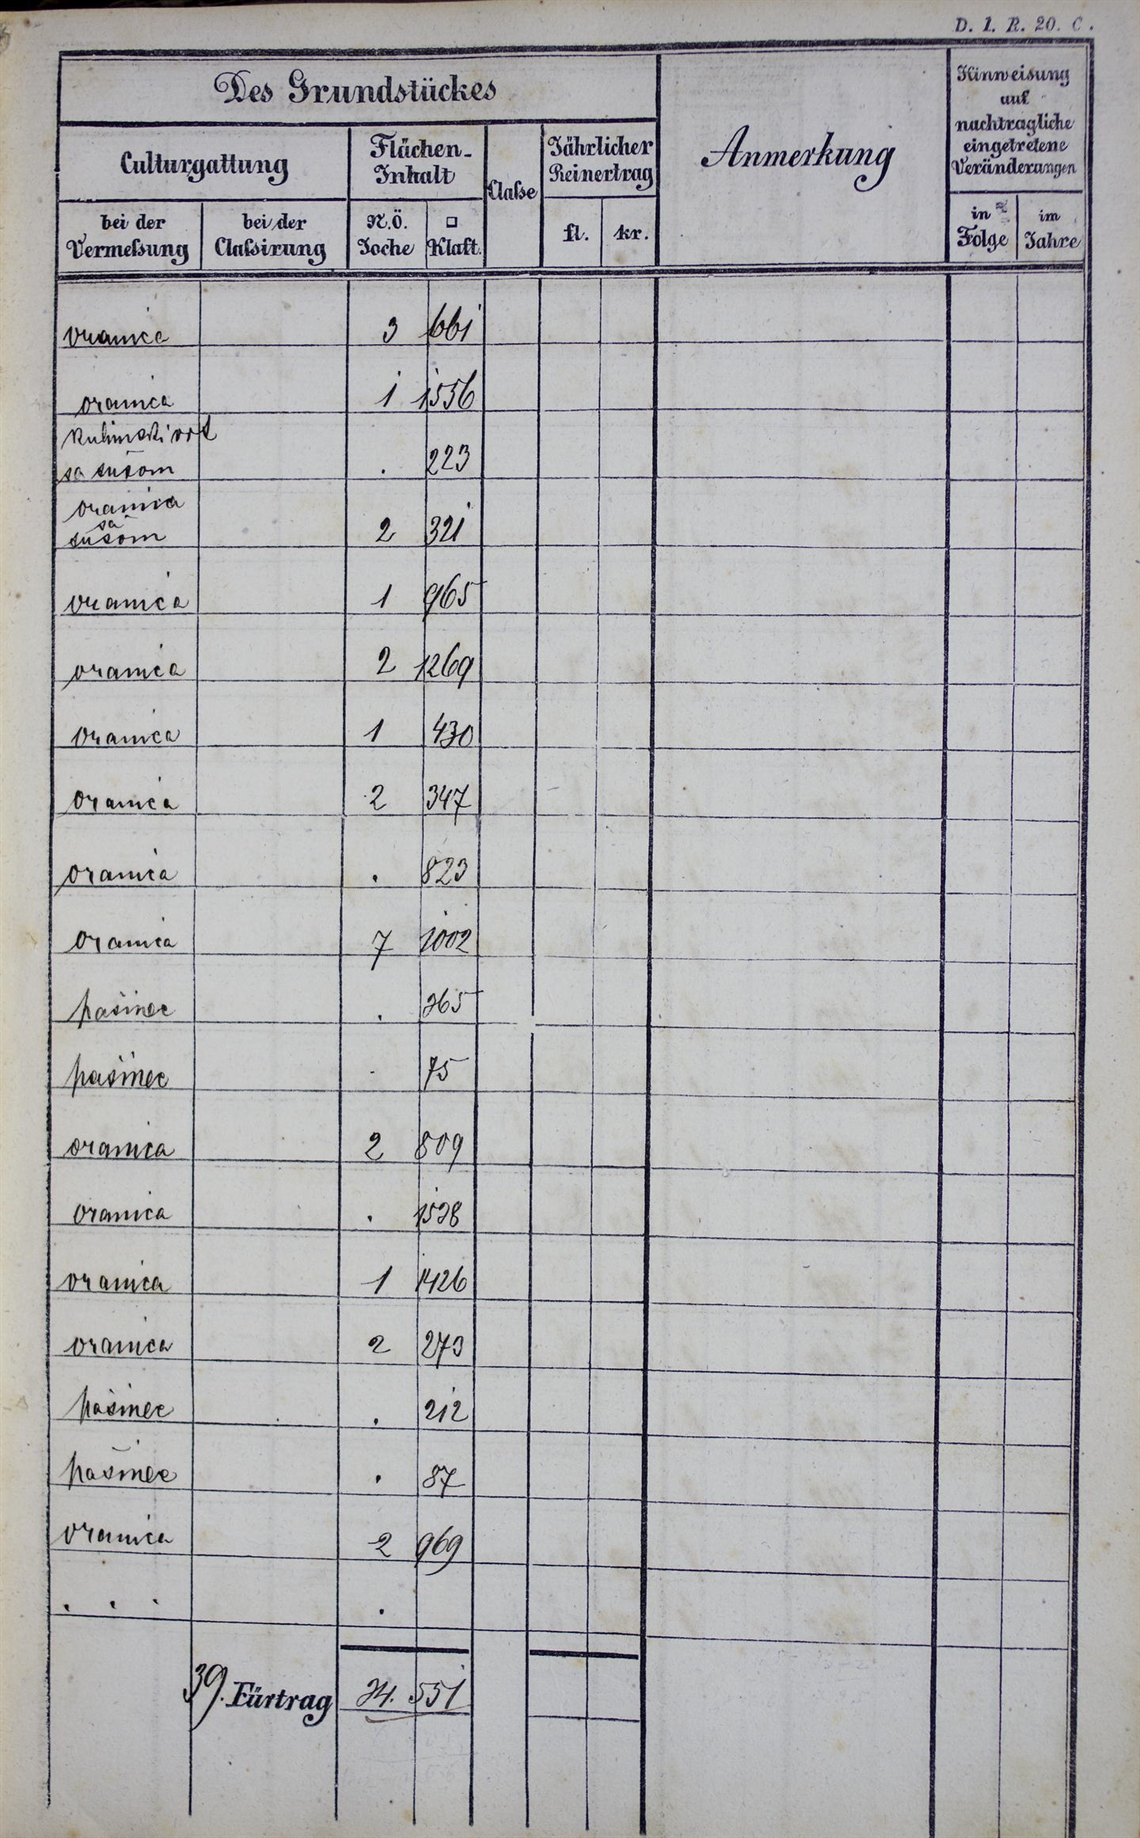 D. 1. R. 20. C.
Des Grundstückes
Anmerkung
Hinweisung
auf
nachtragliche
eingetretene
Veränderungen
Culturgattung
Flächen-
Inhalt
Classe
Jährlicher
Reinertrag
bei der
Vermessung
bei der
Classirung
N.Ö.
Joche
□
Klaft.
fl.
kr.
in
Folge
im
Jahre
oranica 3 661
oranica 1 1556
kuhinski vrt
sa sušom . 223
oranica
sa
sušom 2 321
oranica 1 965
oranica 2 1269
oranica 1 430
oranica 2 347
oranica . 823
oranica 7 1002
pašinec . 365
pašinec . 75
oranica 2 809
oranica . 1538
oranica 1 1426
oranica 2 273
pašinec . 212
pašinec . 87
oranica 2 969
. . . .
39. Fürtrag 34. 551